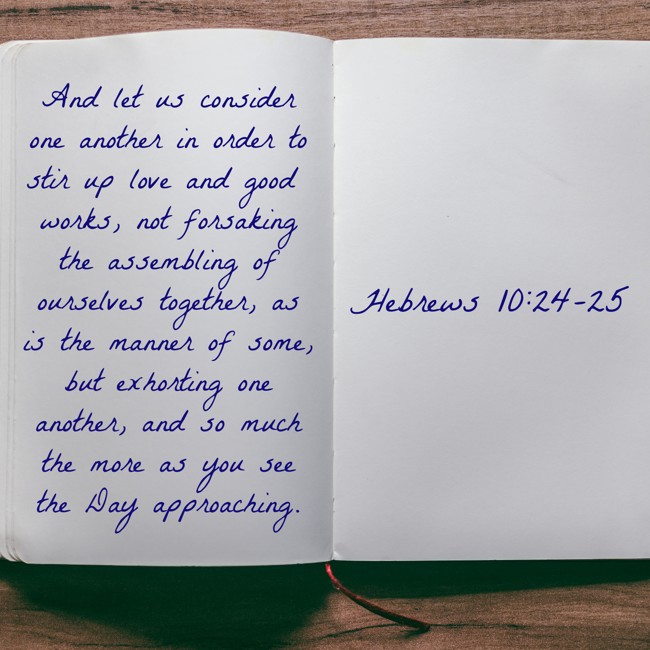 And let us consider
one another in order to
stir up love and good
works, not forsaking
the assembling of
ourselves together, as
is the manner of some,
but exhorting one
another, and so much
the more as you see
the Day approaching.
Hebrews 10:24-25